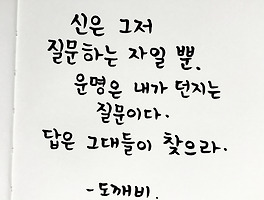 신은 그저
질문하는 자일 뿐.
운명은 내가 던지는
질문이다.
답은 그대들이 찾으라.
-도깨비.